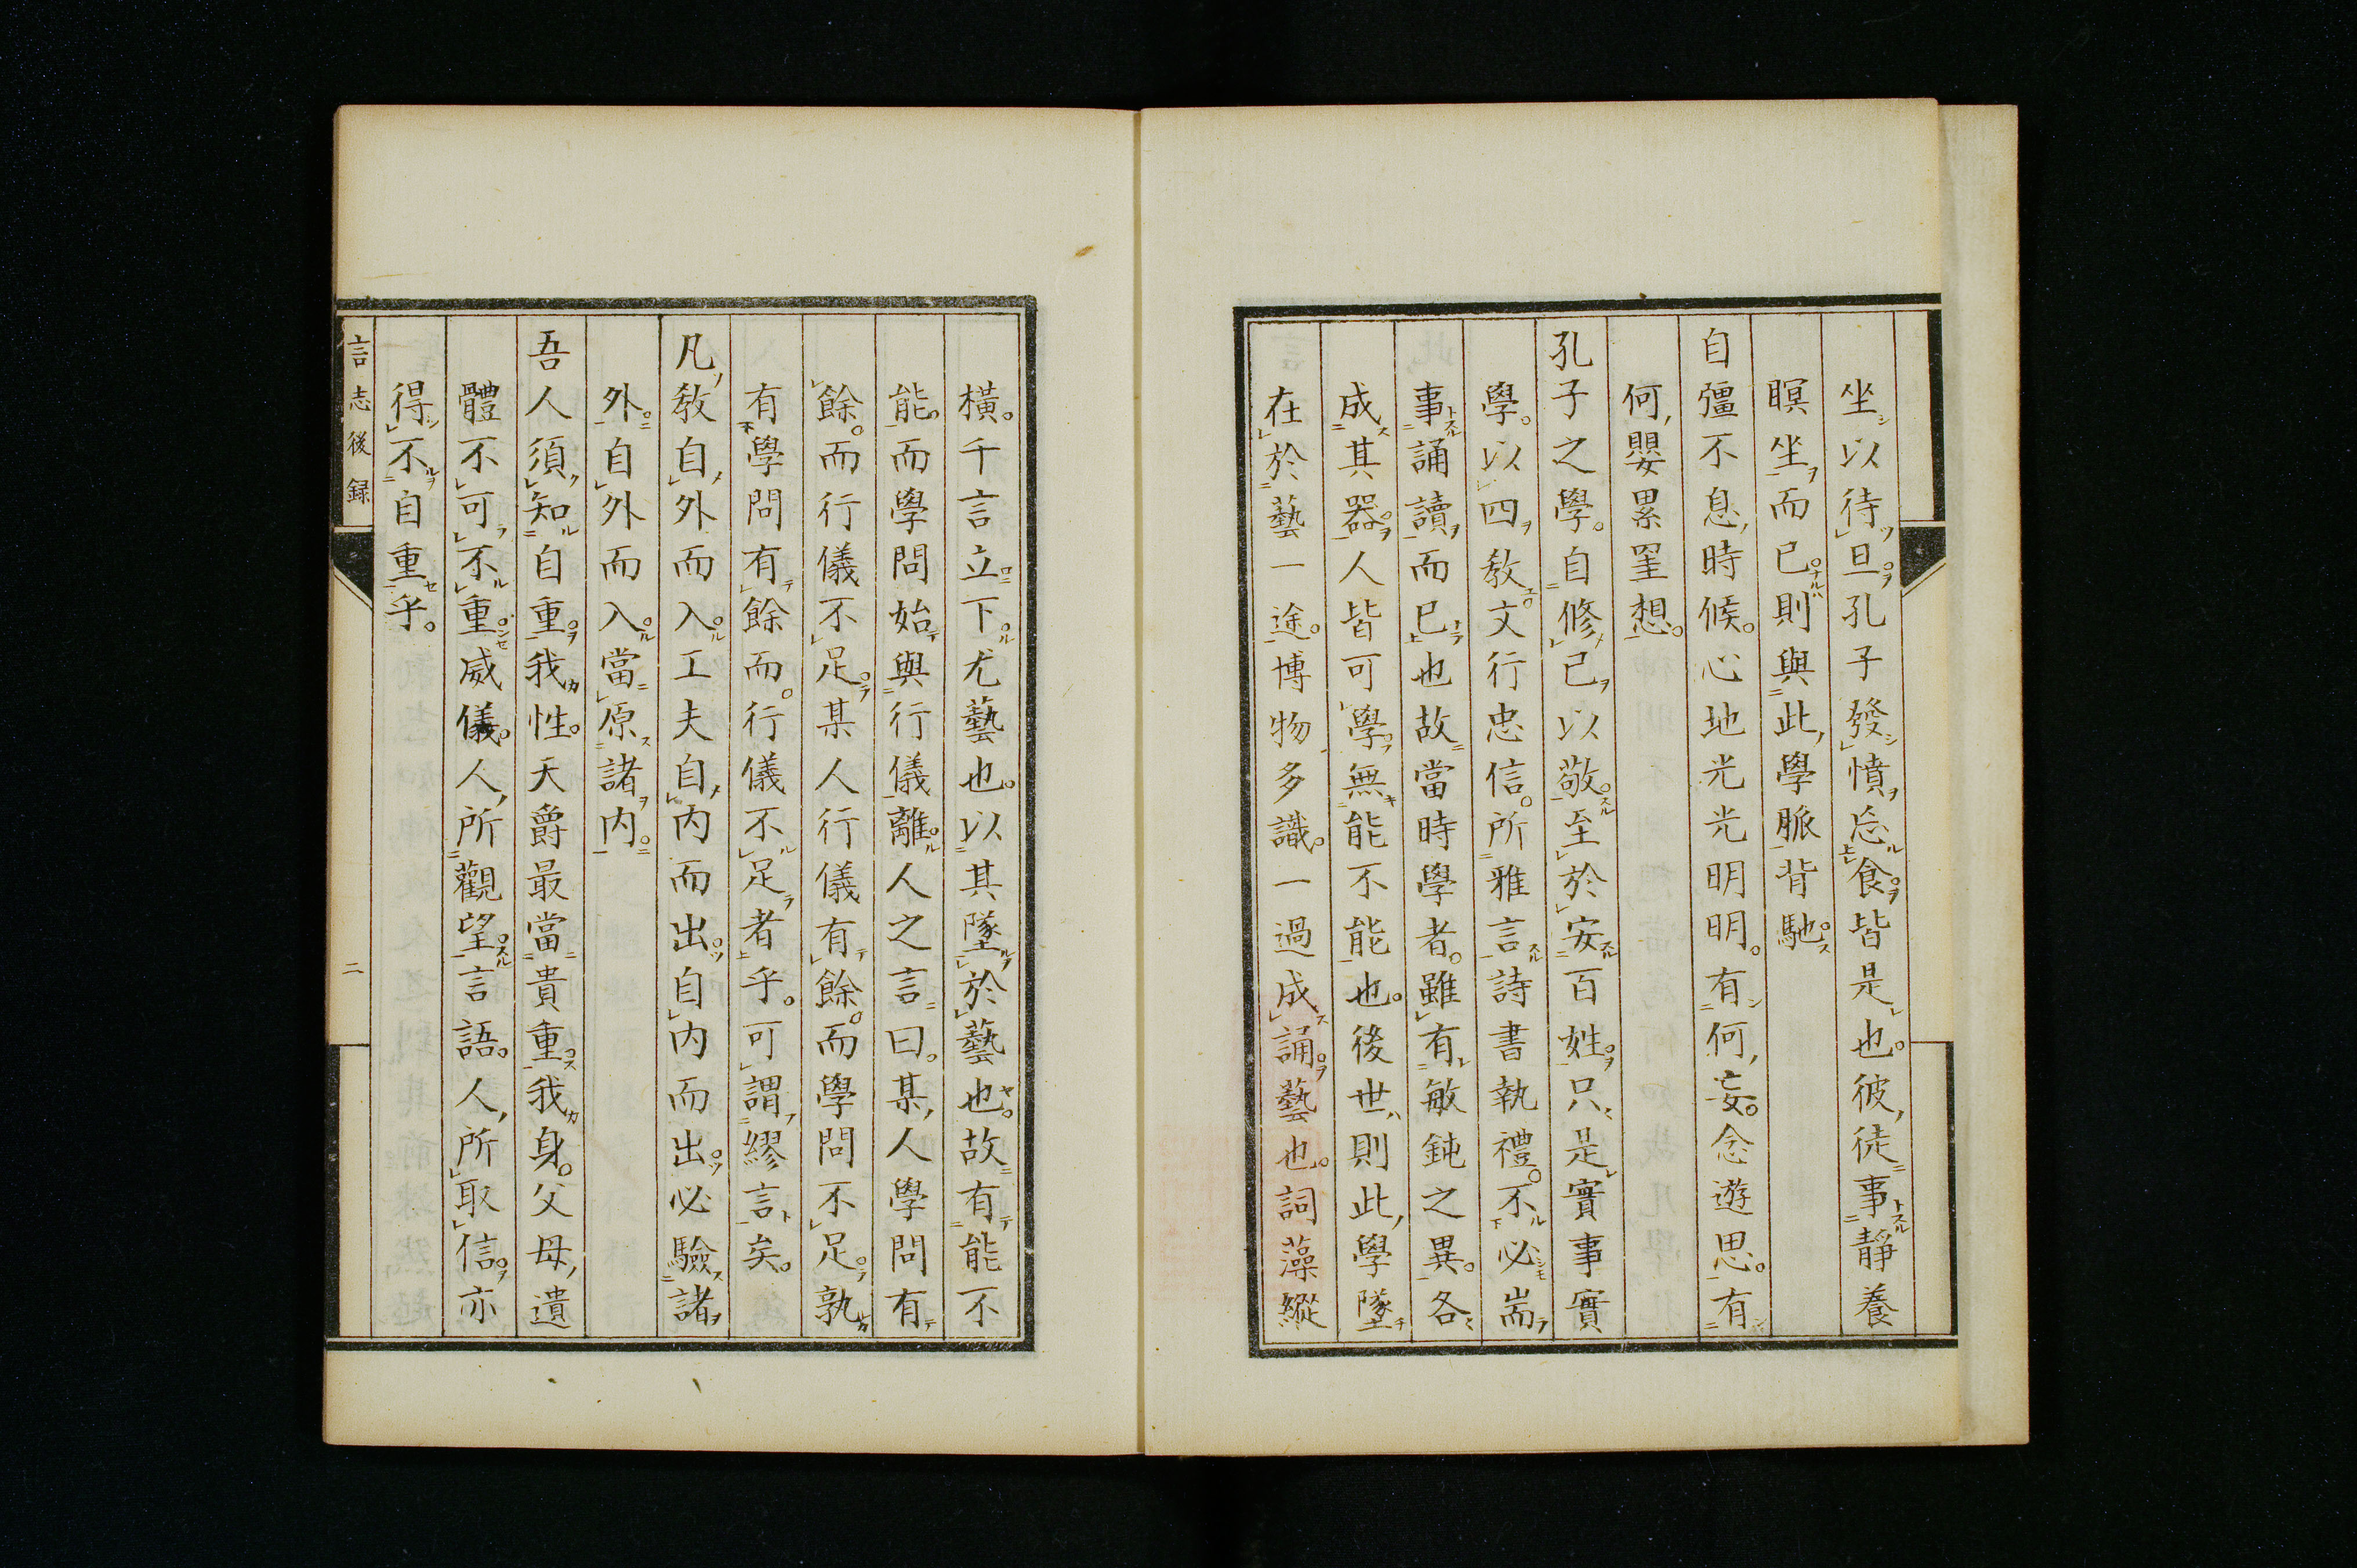 坐以待旦孔子發憤忘食皆是也彼徒事靜養
瞑坐而已則與此學脈背馳
自彊不息時候心地光光明明有何妄念遊思有
何嬰累罣想
孔子之學自修己以敬至於安百姓只是實事實
學以四教文行忠信所雅言詩書執禮不必耑
事誦讀而已也故當時學者雖有敏鈍之異各
成其器人皆可學無能不能也後世則此學墜
在於藝一途博物多識一過成誦藝也詞藻縱
橫千言立下尤藝也以其墜於藝也故有能不
能而學問始與行儀離人之言曰某人學問有
餘而行儀不足某人行儀有餘而學問不足孰
有學問有餘而行儀不足者乎可謂繆言矣
凡教自外而入工夫自內而出自內而出必驗諸
外自外而入當原諸內
吾人須知自重我性天爵最當貴重我身父母遺
體不可不重威儀人所觀望言語人所取信亦
得不自重乎
言志後録
二